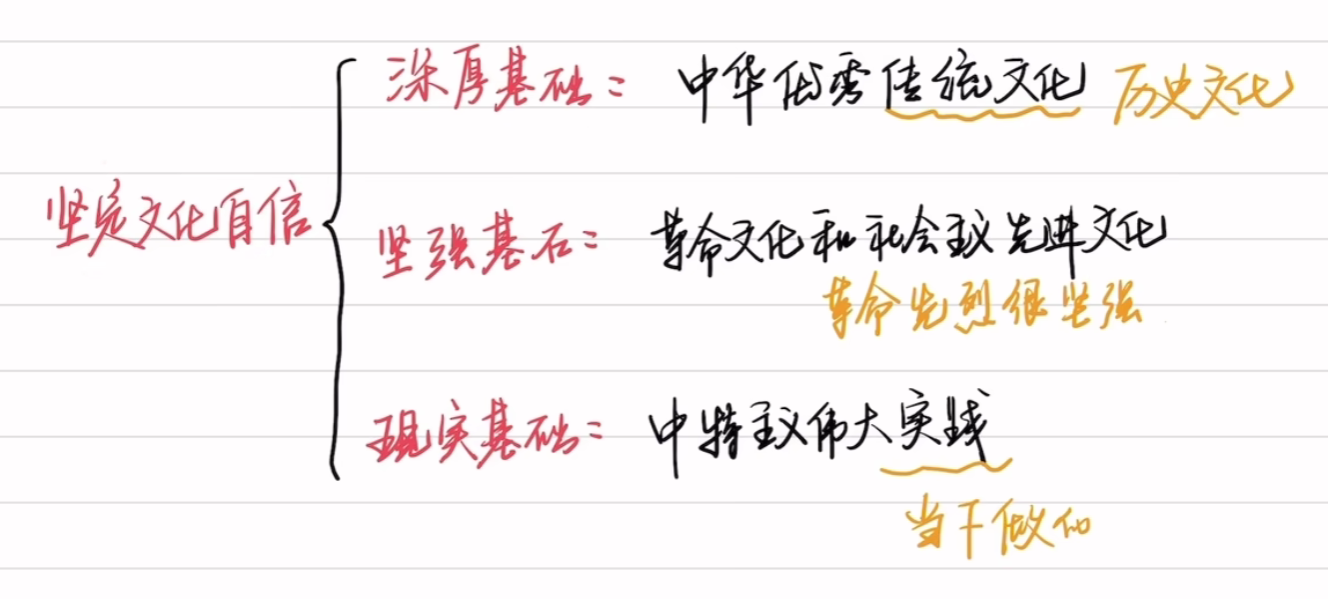 深厚基础：中华优秀传统文化 历史文化
坚定文化自信
坚强基石：革命文化和社会主义先进文化
革命先烈很坚强
现实基础：中特主义伟大实践
当下做的